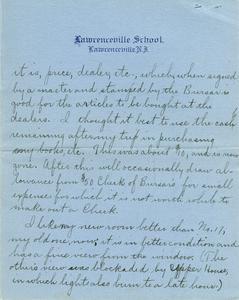 Lawrenceville School.
Lawrenceville N.J.
it is, price, dealer, etc., which, when signed
by a master and stamped by the Bursar is
good for the articles to be bought at the
dealers. I thought at best to use the cash
remaining after my trip in purchasing
some books, etc. This was about $10, and is now
gone. After this will occasionally draw al-
lowance from $50 Check of Bursar's for small
expenses for which it is not worth while to
make out a Check.
I like my new room better than No. 11,
my old one, now; it is in better condition and
has a fine view from the window. (The
other's view was blockaded by Upper House,
in which light also burn to a late hour.)